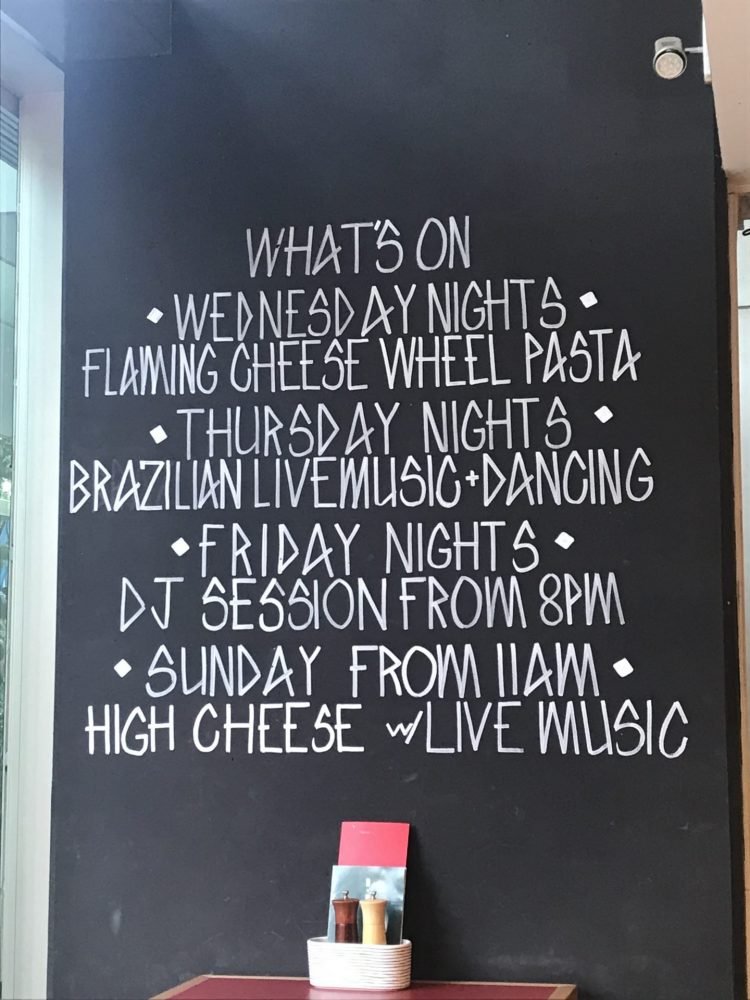 WHAT'S ON
WEDNESDAY NIGHTS
FLAMING CHEESE WHEEL PASTA
THURSDAY NIGHTS
BRAZILIAN LIVE MUSIC + DANCING
FRIDAY NIGHTS
DJ SESSION FROM 8PM
SUNDAY FROM 11AM
HIGH CHEESE w/ LIVE MUSIC